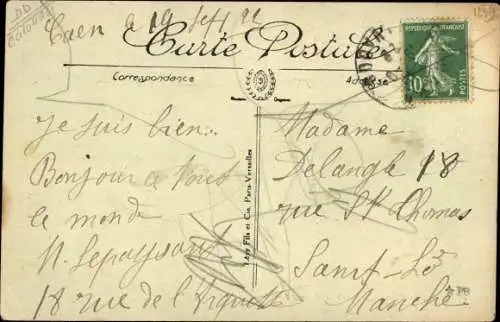 DD
Caen a 19 Sept 22
Carte Postale
Correspondance
Adresse
REPUBLIQUE FRANÇAISE
10c
POSTES
Je suis bien
Bonjour a tout
le monde
18 rue de l'
Madame
Delangle 18
rue St Thomas
Saint-Lô
Manche
Lévy Fils et Cie, Paris-Versailles